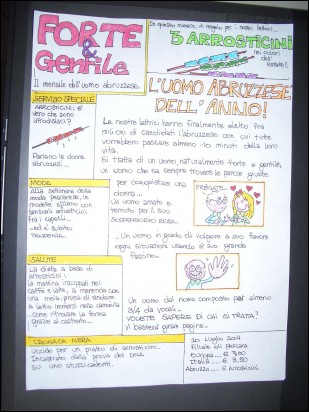 FORTE
&
Gentile
Il mensile dell'uomo abruzzese
In questo numero, in regalo per i nostri lettori...
3 ARROSTICINI
nei colori
dell'estate!
L'UOMO ABRUZZESE
DELL'ANNO!
SERVIZIO SPECIALE
ARROSTICINI: È
vero che sono
afrodisiaci?
Parlano le donne
abruzzesi ...
Le nostre lettrici hanno finalmente eletto fra
milioni di candidati l'abruzzese con cui tutte
vorrebbero passare almeno 10 minuti della loro
vita.
Si tratta di un uomo, naturalmente forte e gentile,
un uomo che sa sempre trovare le parole giuste
per conquistare una
donna...
Un uomo amato e
temuto per il suo
...Un uomo in grado di volgere a suo favore
ogni situazione usando il suo grande
fascino...
MODA
Alla settimana della
moda pescarese, le
modelle sfilano con
arrosticini
fra i capelli...
...ed è subito
tendenza...
SALUTE
La dieta a base di
arrosticini:
la mattina inzuppati nel
caffè e latte, a merenda con
una mela, prima di andare
a letto immersi nella camomilla
...come ritrovare la forma
grazie al castrato...
Un uomo dal nome composto per almeno
3/4 da vocali...
VOLETE SAPERE DI CHI SI TRATTA?
Vi basterà girare pagina...
CRONACA NERA
Uccide per un piatto di arrosticini...
Incastrato dalla prova del DNA
su uno stuzzicadenti.
10 Luglio 2007
Filiale di Pescara
Europa... € 7,00
Italia ... € 3,50
Abruzzo ... 6 Arrosticini